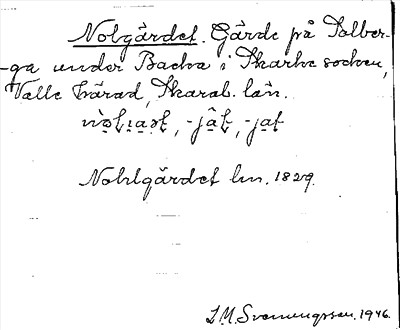 Nolgärdet. Gärde på Solber-
-ga under Backa i Skarke socken,
Valle härad, Skarab. län.
-jât, -jat
Nohlgärdet lm. 1829.
S. M. Svenungsson. 1946.